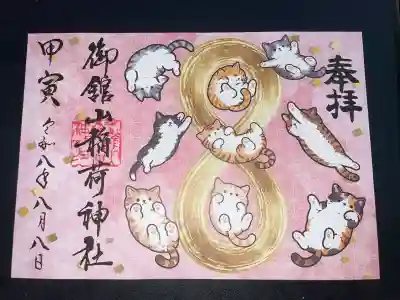 奉拝
8
御舘山稲荷神社
甲寅
令和八年八月八日